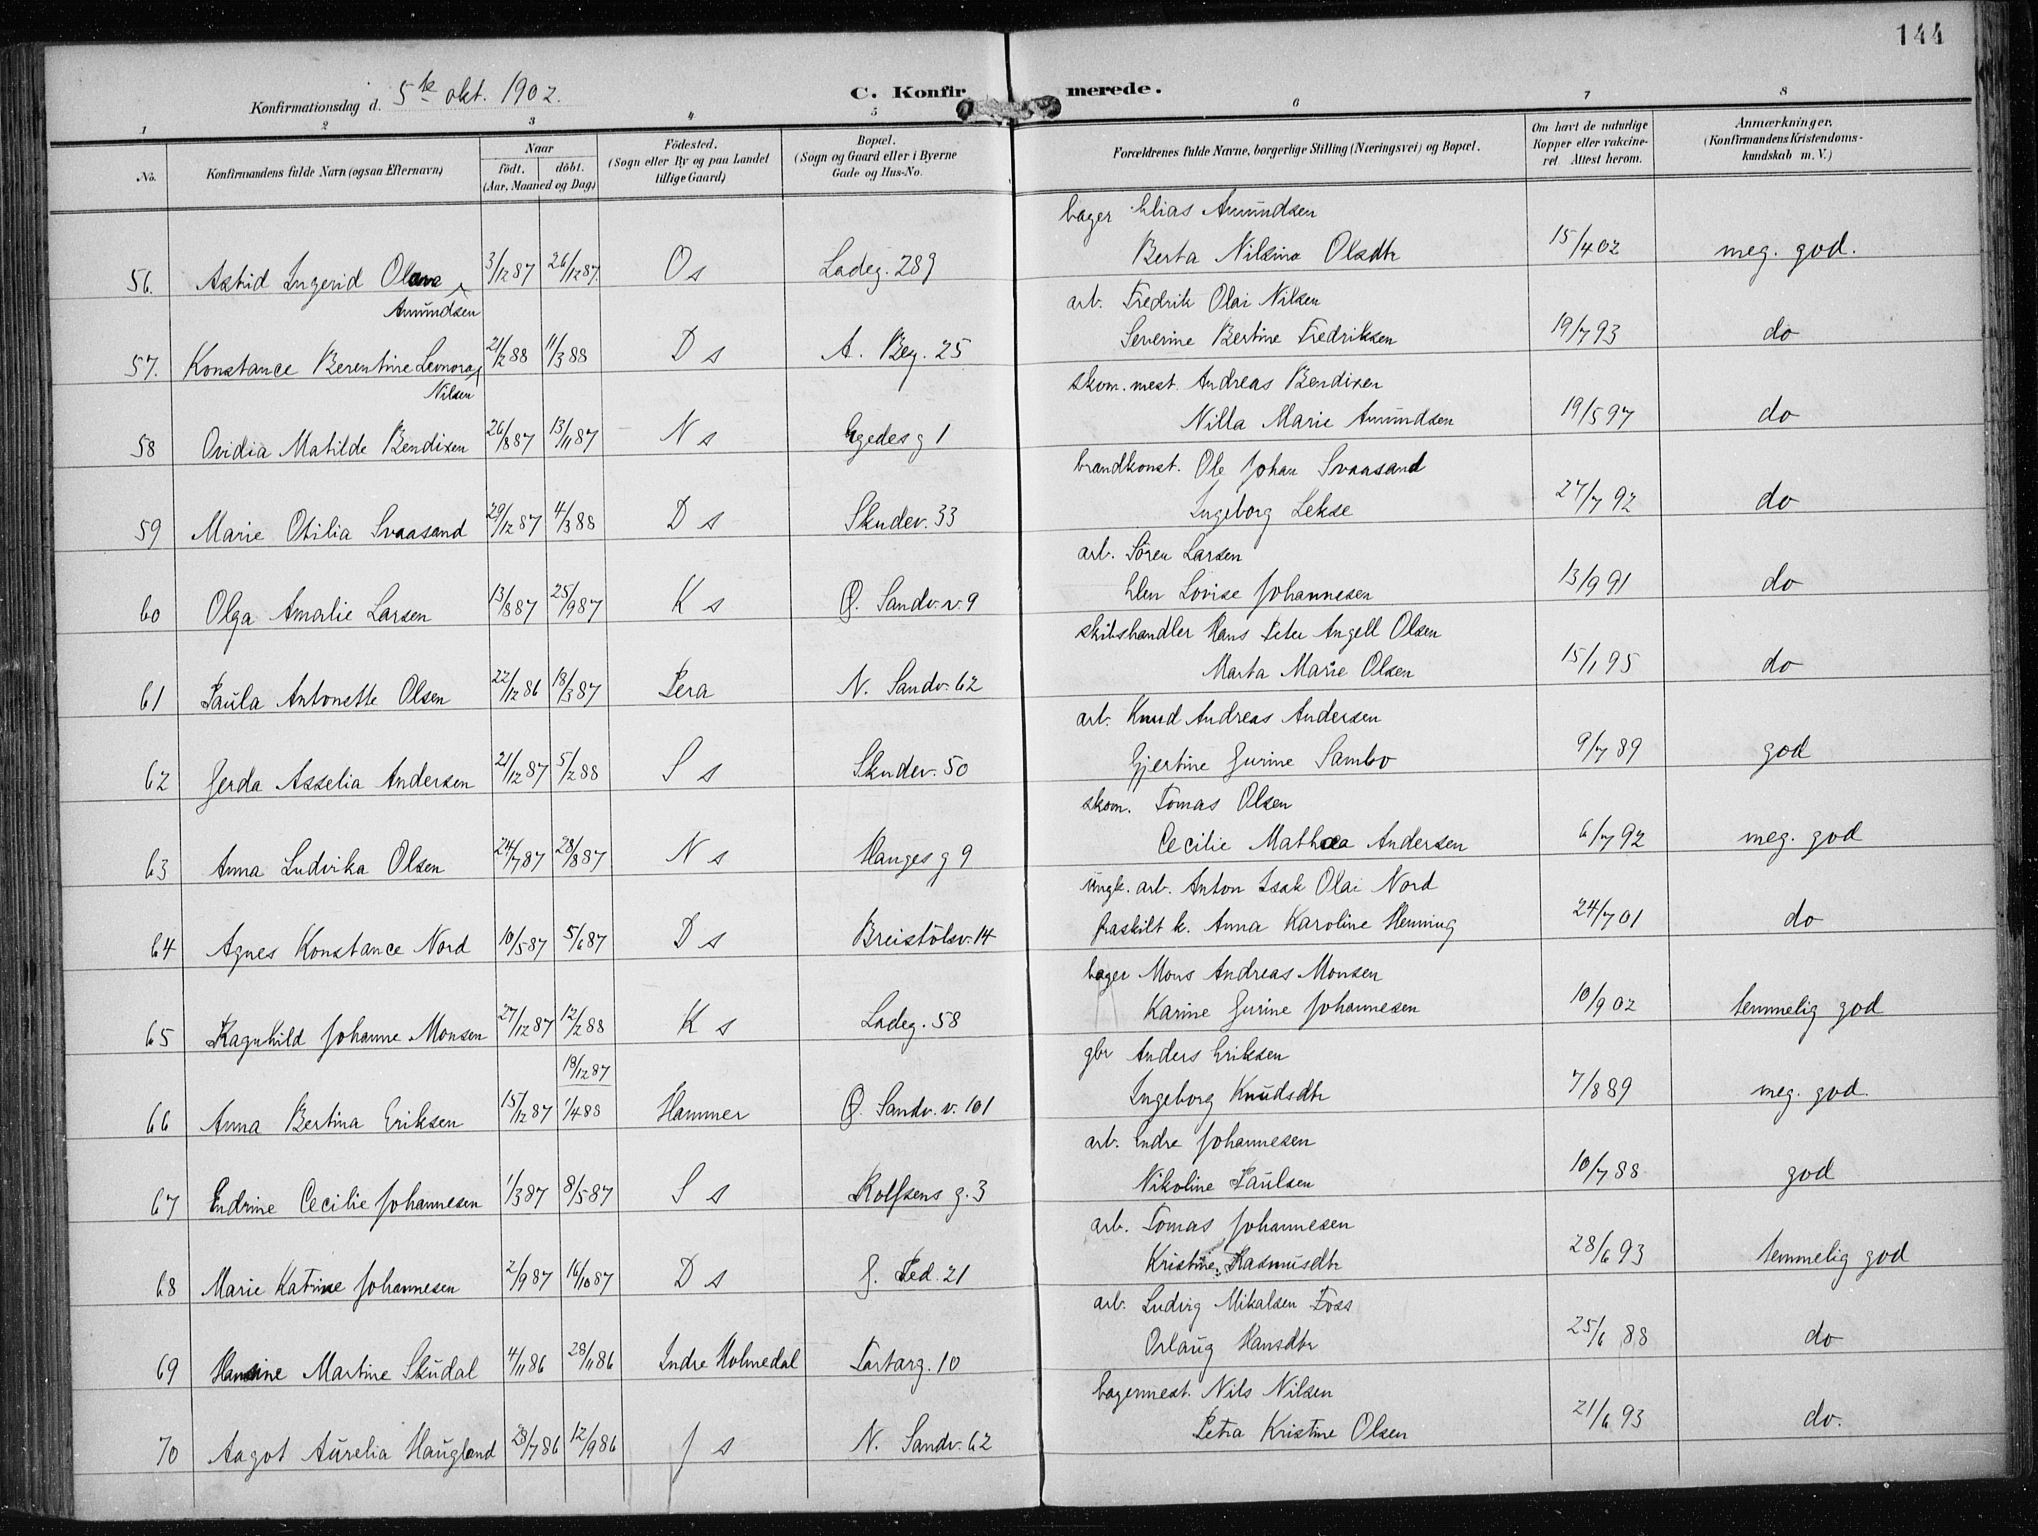 144
Konfirmationsdag d. 5te okt. 1902.
C. Konfirmerede.
1 2 3 4 5 6 7 8
No.
Konfirmandens fulde Navn (ogsaa Efternavn)
Naar
födt. döbt.
(Aar, Maaned og Dag)
Födested.
(Sogn eller By og paa Landet
tillige Gaard)
Bopæl.
(Sogn og Gaard eller i Byerne
Gade og Hus-No.
Forældrenes fulde Navne, borgerlige Stilling (Næringsvei) og Bopæl.
Om havt de naturlige
Kopper eller vakcine-
ret Attest herom.
Anmærkninger.
(Konfirmandens Kristendoms-
kundskab m. V.)
bager Elias Amundsen
56. Astrid Ingerid Olava 3/12 87 26/12 87 O s Ladeg. 289 Berta Nilsina Olsdtr 15/4 02 meg. god.
Amundsen
arb. Fredrik Olai Nilsen
57. Konstance Berentine Leonora 21/2 88 11/3 88 D s A. Beg. 25 Severine Bertine Fredriksen 19/7 93 do
Nilsen
skom. mest. Andreas Bendixen
58 Ovidia Matilde Bendixen 26/8 87 13/11 87 N s Egedes g 1 Nilla Marie Amundsen 19/5 97 do
brandkonst. Ole Johan Svaasand
59 Marie Otilia Svaasand 29/12 87 4/3 88 D s Skudev. 33 Ingeborg Lekse 27/7 92 do
arb. Sören Larsen
60 Olga Amalie Larsen 13/8 87 25/9 87 K s Ø. Sandv. v. 9 Elen Lovise Johannesen 13/9 91 do
skibshandler Hans Peter Angell Olsen
61 Paula Antonette Olsen 22/12 86 18/3 87 Pera N. Sandv. 62 Marta Marie Olsen 15/1 95 do
arb. Knud Andreas Andersen
62 Gerda Asselia Andersen 21/12 87 5/2 88 S s Skudev. 50 Gjertine Gurine Sambo 9/7 89 god
skom. Tomas Olsen
63 Anna Ludvika Olsen 24/7 87 28/8 87 N s Hauges g 9 Cecilie Mathea Andersen 6/7 92 meg. god
ungk. arb. Anton Isak Olai Nord
64 Agnes Konstance Nord 10/5 87 5/6 87 D s Breistölsv. 14 fraskilt k. Anna Karoline Henning 24/7 01 do
bager Mons Andreas Monsen
65 Ragnhild Johanne Monsen 27/12 87 12/2 88 K s Ladeg. 58 Karine Gurine Johannesen 10/9 02 temmelig god
18/12 87 gbr Anders Eriksen
66 Anna Bertina Eriksen 15/12 87 1/4 88 Hammer Ø. Sandv. v. 101 Ingeborg Knudsdtr 7/8 89 meg. god.
arb. Endre Johannesen
67 Endrine Cecilie Johannesen 1/3 87 8/5 87 S s Rolfsens g. 3 Nikoline Paulsen 10/7 88 god
arb. Tomas Johannesen
68 Marie Katrine Johannesen 2/9 87 16/10 87 D s J. Ped. 21 Kristine Rasmusdtr 28/6 93 temmelig god
arb. Ludvig Mikalsen Foss
69 Hansine Martine Skudal 4/11 86 28/11 86 Indre Holmedal Tartarg. 10 Orlaug Hansdtr 25/6 88 do
bagermest. Nils Nilsen
70 Aagot Aurelia Haugland 28/7 86 12/9 86 J s N. Sandv. 62 Petra Kristine Olsen 21/6 93 do.